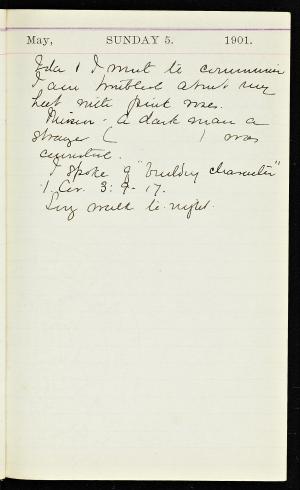 May, SUNDAY 5. 1901.
Ida & I went to communion
I am troubled about my
with
Mission - a dark man a
stranger ( ) was
converted.
I spoke of "building character"
1 Cor. 3: 9-17.
Long walk to-night.